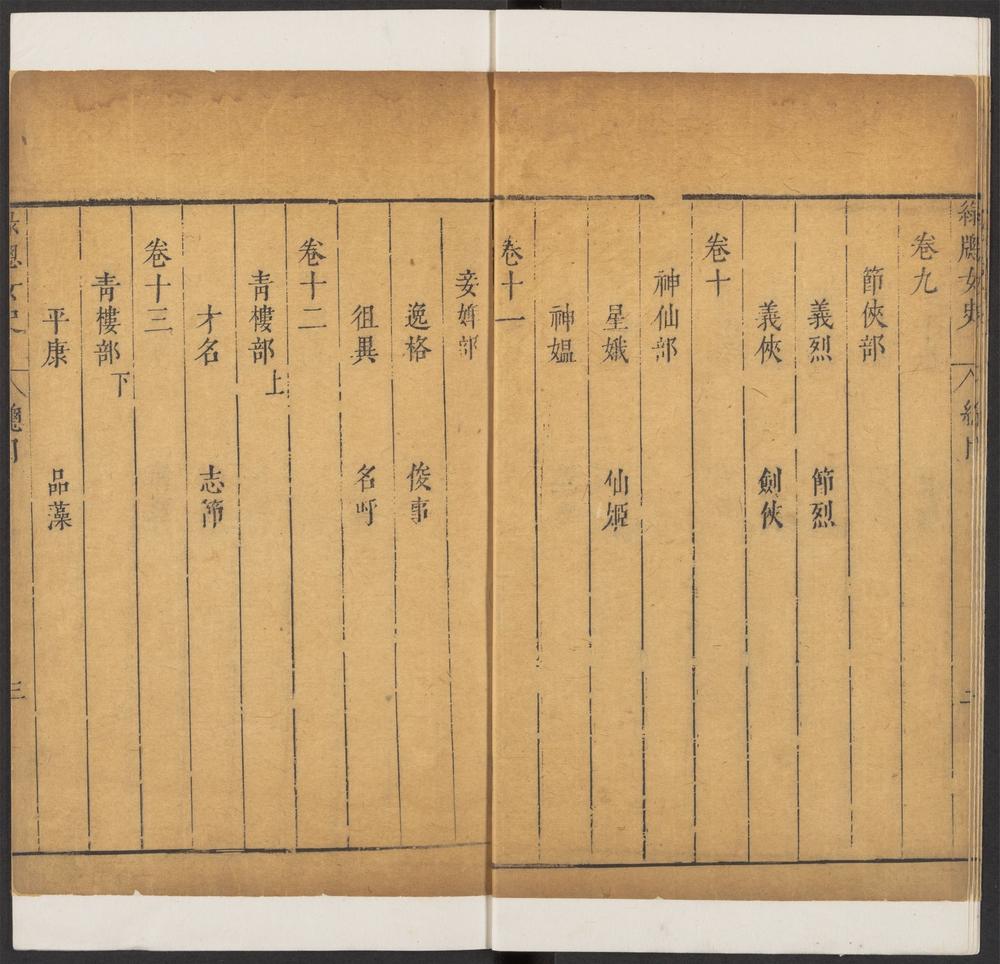 綠牕女史 總目 二
卷九
節俠部
義烈 節烈
義俠 劍俠
卷十
神仙部
星娥 仙姬
神媼
卷十一
妾婢部
逸格 俊事
徂異 名呼
卷十二
青樓部上
才名 志節
卷十三
青樓部下
平康 品藻
女史 總目 三